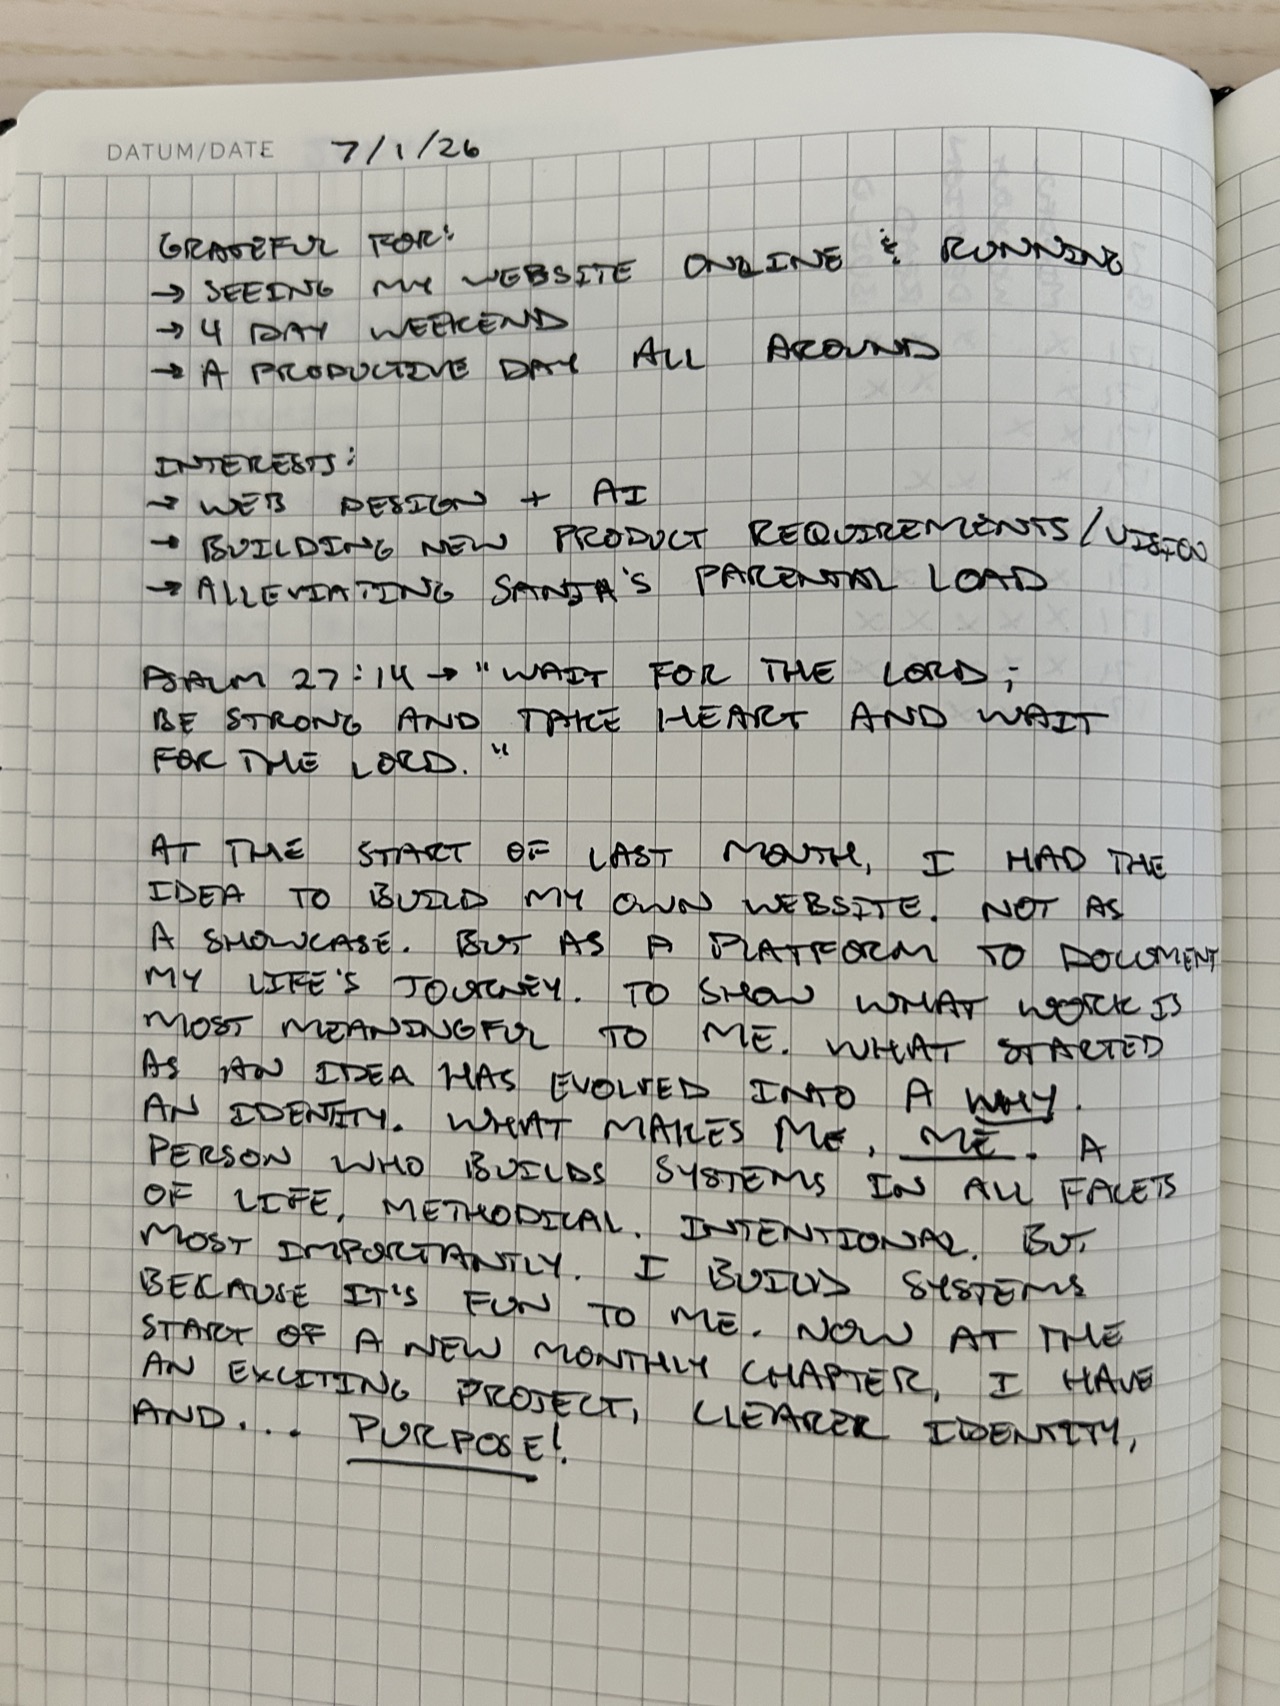 DATUM/DATE 7/1/26
GRATEFUL FOR:
→ SEEING MY WEBSITE ONLINE & RUNNING
→ 4 DAY WEEKEND
→ A PRODUCTIVE DAY ALL AROUND
INTERESTS:
→ WEB DESIGN + AI
→ BUILDING NEW PRODUCT REQUIREMENTS/VISION
→ ALLEVIATING SANJA'S PARENTAL LOAD
PSALM 27:14 → "WAIT FOR THE LORD;
BE STRONG AND TAKE HEART AND WAIT
FOR THE LORD."
AT THE START OF LAST MONTH, I HAD THE
IDEA TO BUILD MY OWN WEBSITE. NOT AS
A SHOWCASE. BUT AS A PLATFORM TO DOCUMENT
MY LIFE'S JOURNEY. TO SHOW WHAT WORK IS
MOST MEANINGFUL TO ME. WHAT STARTED
AS AN IDEA HAS EVOLVED INTO A WHY.
AN IDENTITY. WHAT MAKES ME, ME. A
PERSON WHO BUILDS SYSTEMS IN ALL FACETS
OF LIFE, METHODICAL. INTENTIONAL. BUT
MOST IMPORTANTLY. I BUILD SYSTEMS
BECAUSE IT'S FUN TO ME. NOW AT THE
START OF A NEW MONTHLY CHAPTER, I HAVE
AN EXCITING PROJECT, CLEARER IDENTITY,
AND... PURPOSE!